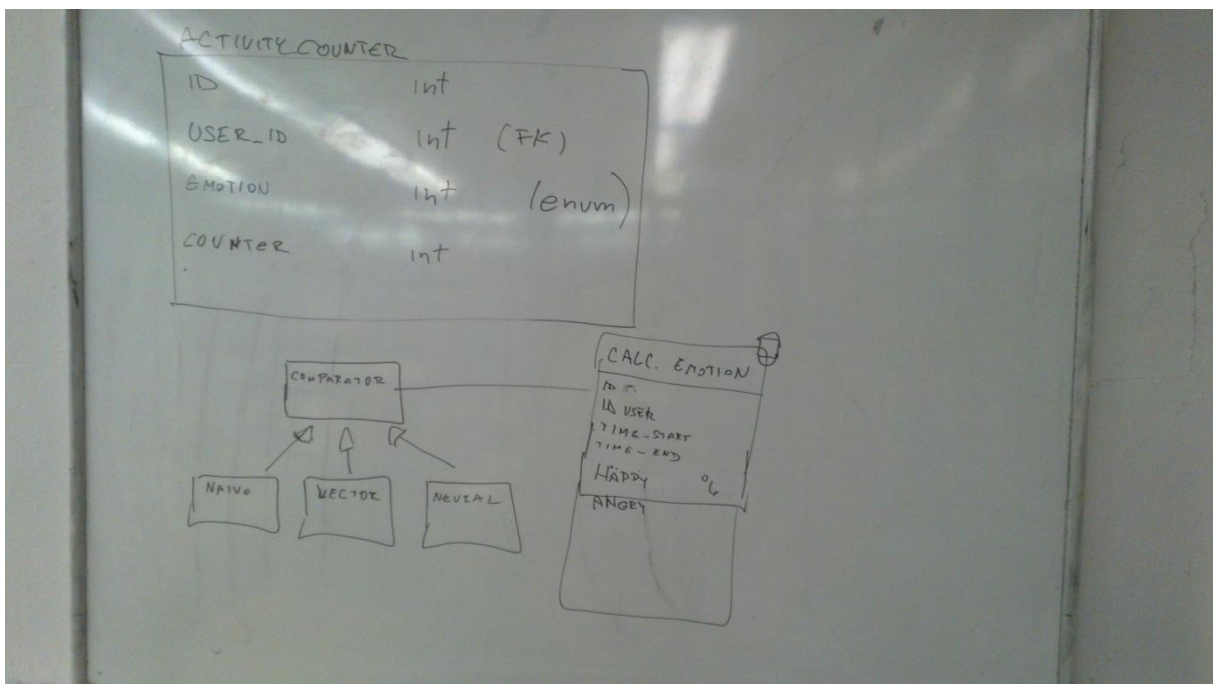 ACTIVITY COUNTER
ID int
USER_ID int (FK)
EMOTION int (enum)
COUNTER int
COMPARATOR
NAIVE
VECTOR
NEURAL
CALC. EMOTION
ID
ID USER
TIME_START
TIME_END
HAPPY %
ANGRY